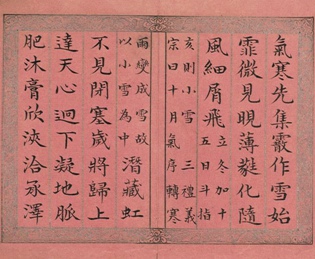 氣寒先集霰作雪始
霏微見晛薄蕤化隨
風細屑飛立冬加十
五日斗指
亥則小雪三禮義
宗曰十月氣序轉寒
雨變成雪故
以小雪為中潛藏虹
不見閉塞歲將歸上
達天心迴下凝地脈
肥沐膏欣浹洽承澤